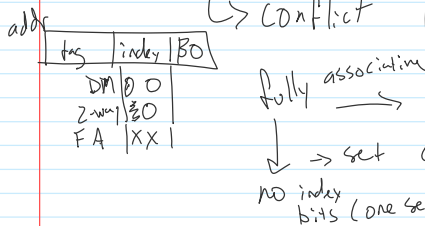 ↳ conflict
addr
tag | index | BO
DM | 0 0 |
2-way | 0 |
FA | X X |
fully associative →
↓ → set
no index
bits (one se